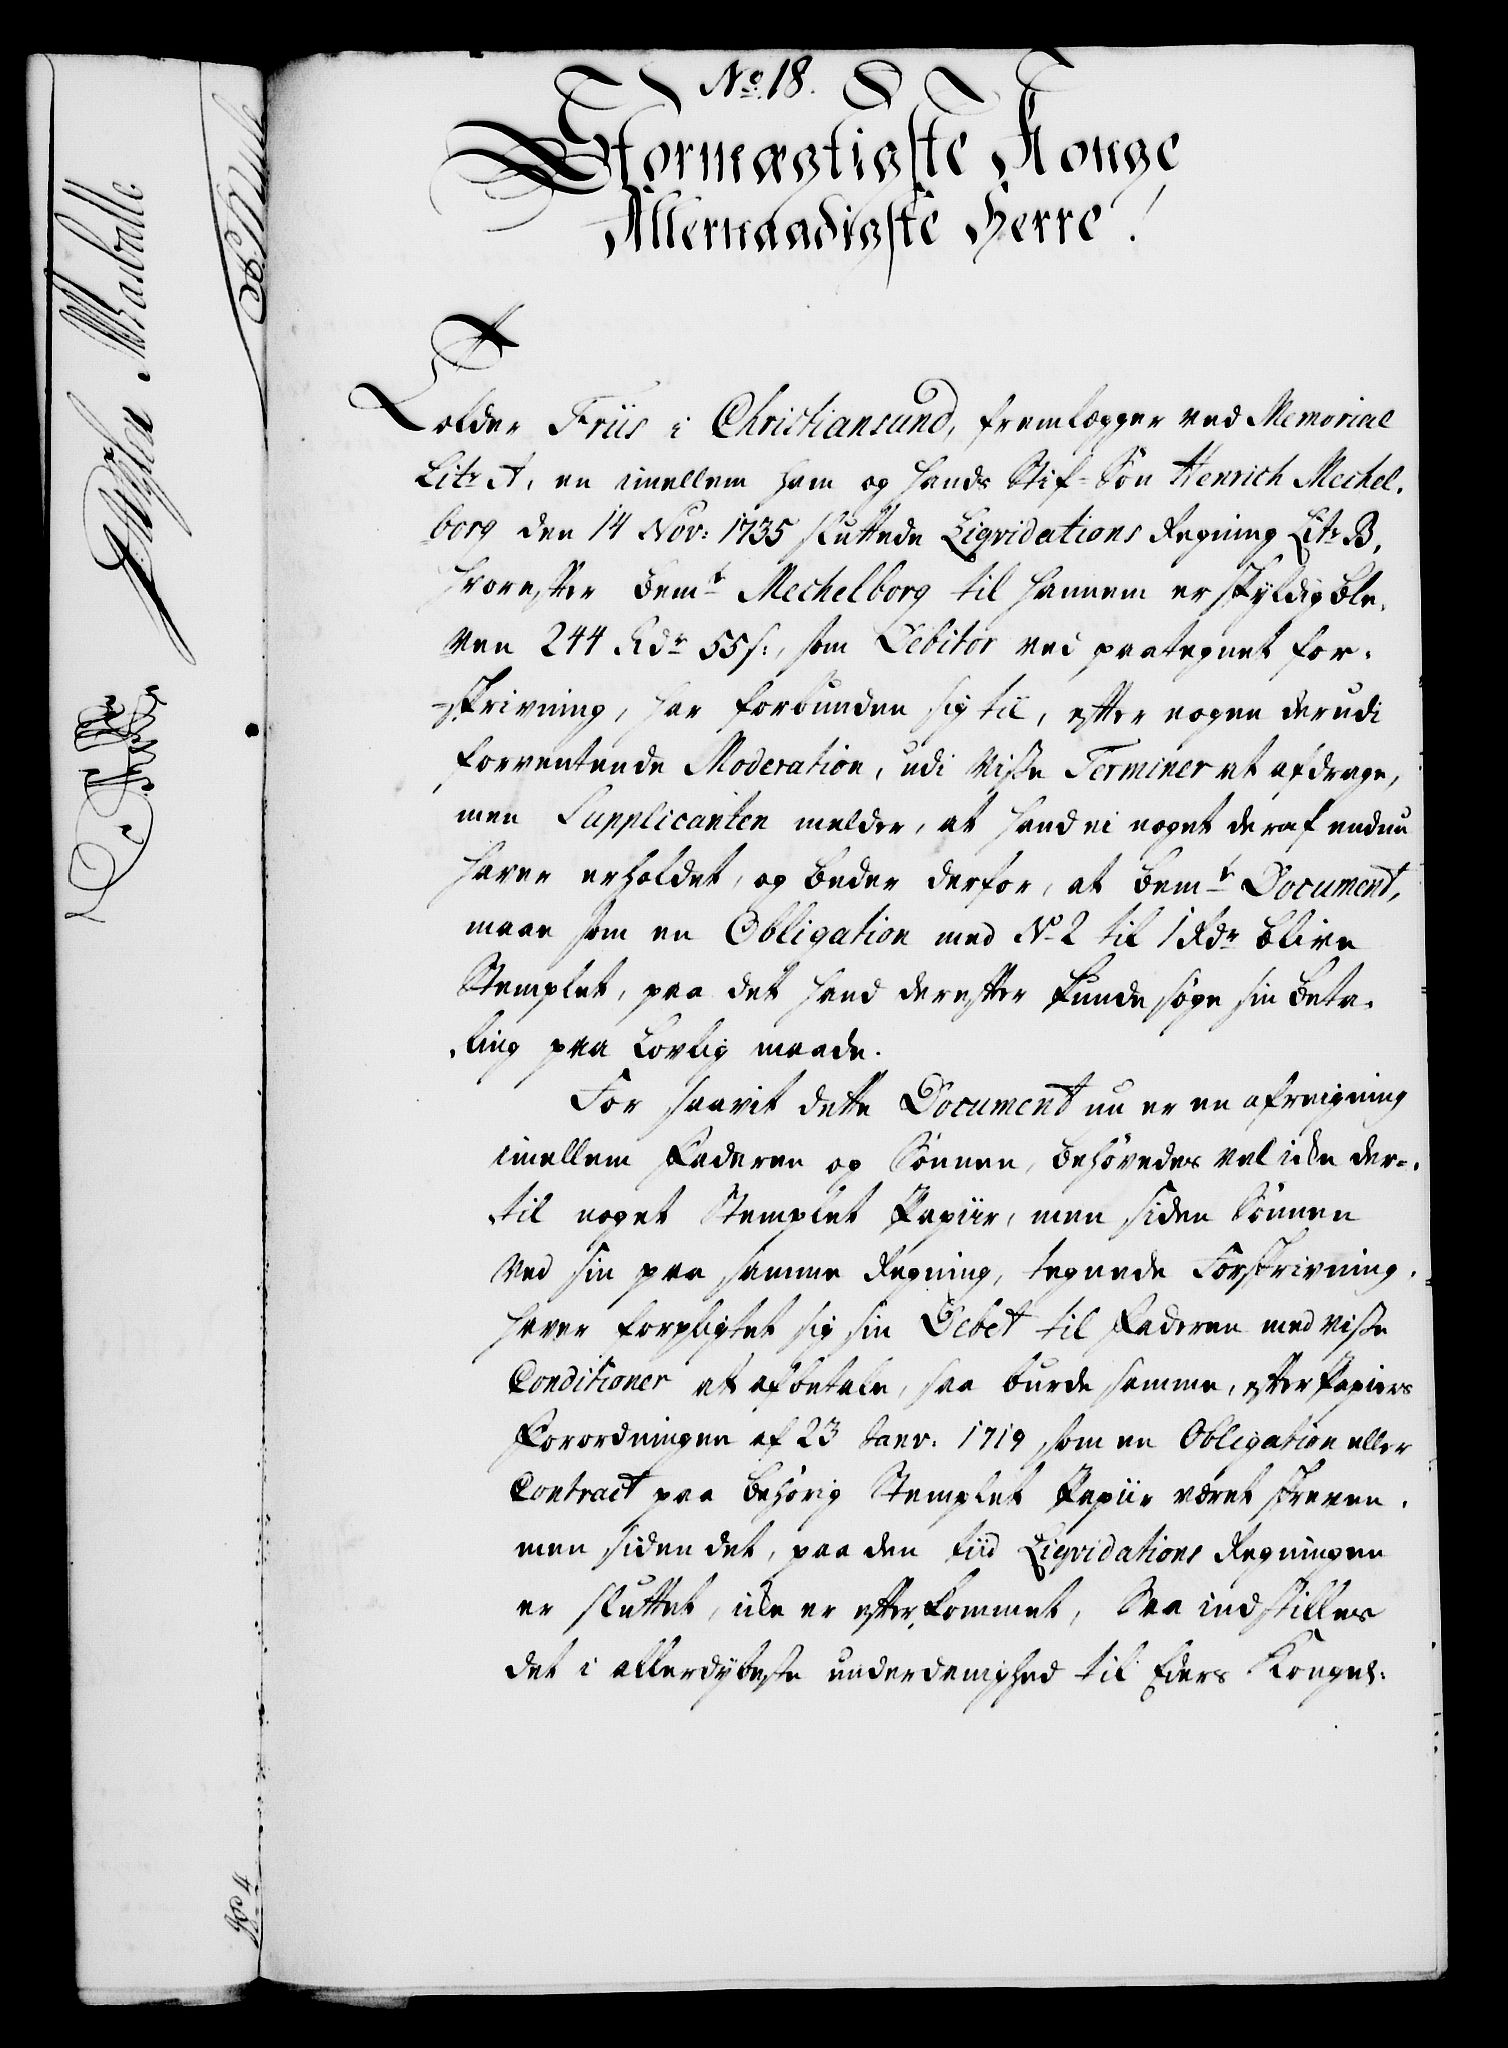 No. 18.
Stormægtigste Konge
Allernaadigste Herre!
Folder Friis i Christiansund, fremlægger ved Memorial
Litr A, en imellem ham og hands Stif-Søn Henrich Mechel-
borg den 14 Nov: 1735 sluttede Liqvidations Regning Litr B,
hvorefter bemte Mechelborg til hannem er skyldig ble-
ven 244 Rdr 55 s:, som Debitor ved paategnet for-
-skrivning, har forbunden sig til, efter nogen derudi
forventende Moderation, udi visse Terminer at afdrage,
men Supplicanten melder, at hand ei noget deraf endnu
haver erholdet, og beder derfor, at bemte Document,
maae som en Obligation med No 2 til 1 Rdr blive
Stemplet, paa det hand derefter kunde søge sin beta-
-ling paa Lovlig maade.
For saavit dette Document nu er en afreigning
imellem Faderen og Sønnen, behøvedes vel icke der-
til noget Stemplet Papiir, men siden Sønnen
ved sin paa samme Regning, tegnede Forskrivning
haver forpligtet sig sin Debet til Faderen med visse
Conditioner at afbetale, saa burde samme, efter Papiirs
Forordningen af 23 Janv: 1719 som en Obligation eller
Contract paa behörig Stemplet Papiir været skreven,
men siden det, paa den tiid Liqvidations Regningen
er sluttet, icke er efterkommet, Saa indstilles
det i allerdybeste underdanighed til Eders Kongel: